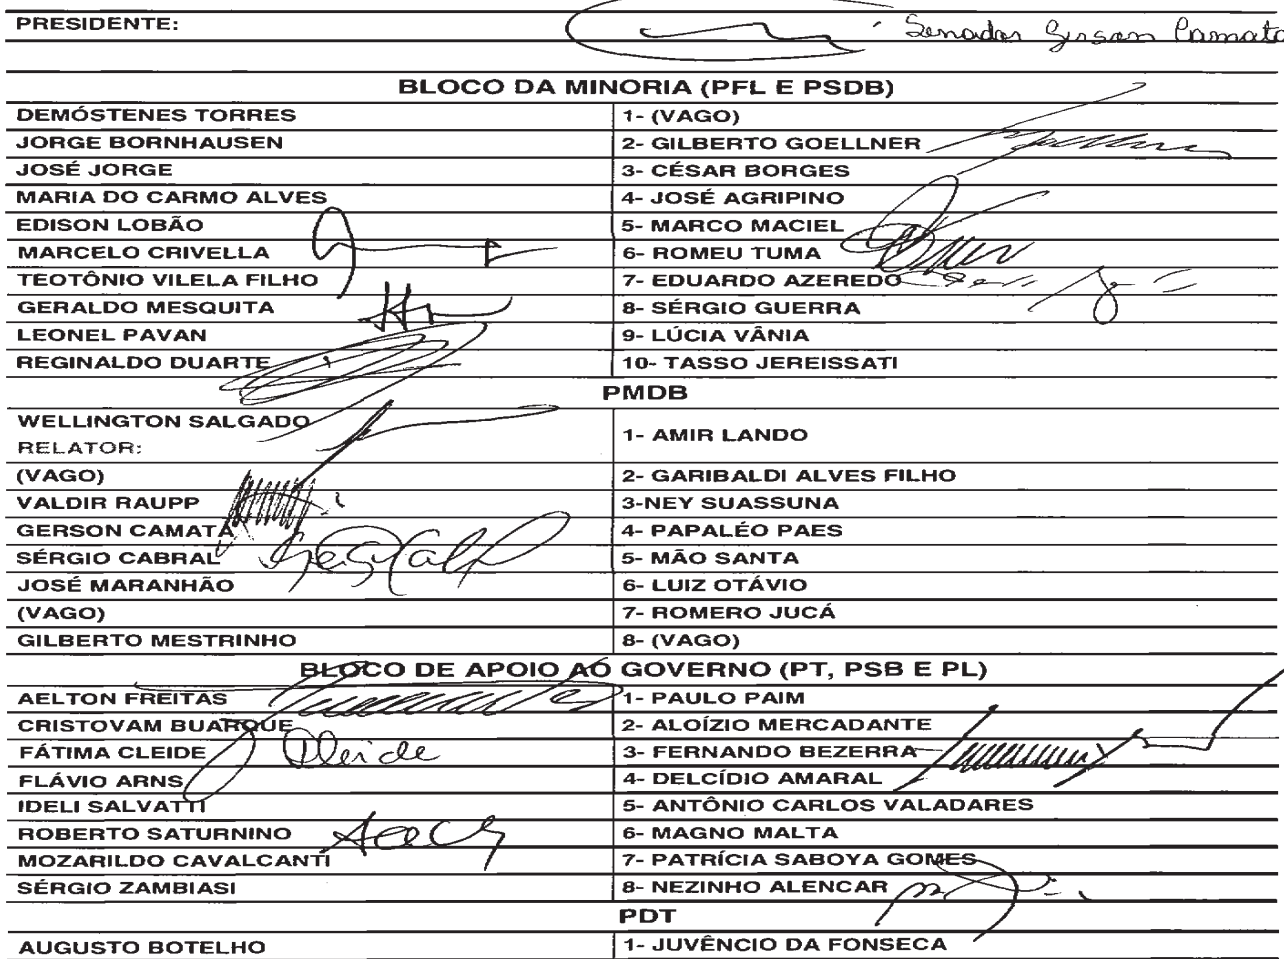 PRESIDENTE: Senador Gerson Camata
BLOCO DA MINORIA (PFL E PSDB)
DEMÓSTENES TORRES 1- (VAGO)
JORGE BORNHAUSEN 2- GILBERTO GOELLNER
JOSÉ JORGE 3- CÉSAR BORGES
MARIA DO CARMO ALVES 4- JOSÉ AGRIPINO
EDISON LOBÃO 5- MARCO MACIEL
MARCELO CRIVELLA 6- ROMEU TUMA
TEOTÔNIO VILELA FILHO 7- EDUARDO AZEREDO
GERALDO MESQUITA 8- SÉRGIO GUERRA
LEONEL PAVAN 9- LÚCIA VÂNIA
REGINALDO DUARTE 10- TASSO JEREISSATI
PMDB
WELLINGTON SALGADO
RELATOR: 1- AMIR LANDO
(VAGO) 2- GARIBALDI ALVES FILHO
VALDIR RAUPP 3-NEY SUASSUNA
GERSON CAMATA 4- PAPALÉO PAES
SÉRGIO CABRAL 5- MÃO SANTA
JOSÉ MARANHÃO 6- LUIZ OTÁVIO
(VAGO) 7- ROMERO JUCÁ
GILBERTO MESTRINHO 8- (VAGO)
BLOCO DE APOIO AO GOVERNO (PT, PSB E PL)
AELTON FREITAS 1- PAULO PAIM
CRISTOVAM BUARQUE 2- ALOÍZIO MERCADANTE
FÁTIMA CLEIDE Cleide 3- FERNANDO BEZERRA
FLÁVIO ARNS 4- DELCÍDIO AMARAL
IDELI SALVATTI 5- ANTÔNIO CARLOS VALADARES
ROBERTO SATURNINO 6- MAGNO MALTA
MOZARILDO CAVALCANTI 7- PATRÍCIA SABOYA GOMES
SÉRGIO ZAMBIASI 8- NEZINHO ALENCAR
PDT
AUGUSTO BOTELHO 1- JUVÊNCIO DA FONSECA